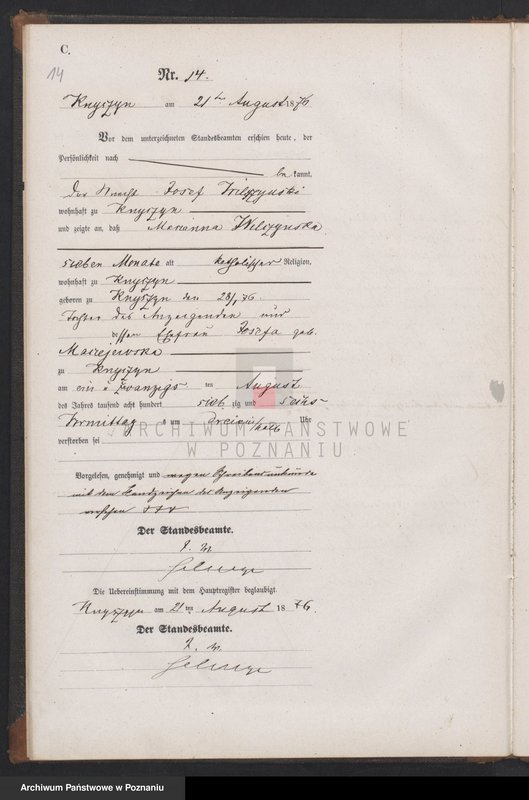 C.
14
Nr. 14.
Knyszyn am 21ten August 1876
Vor dem unterzeichneten Standesbeamten erschien heute, der
Persönlichkeit nach
be kannt,
Der Knecht Josef Wilczynski
wohnhaft zu Knyszyn
und zeigte an, daß Marianna Wilczynska
sieben Monate alt katholischer Religion,
wohnhaft zu Knyszyn
geboren zu Knyszyn den 28/1 76.
Tochter des Anzeigenden und
dessen Ehefrau Josefa geb.
Maciejewska
zu Knyszyn
am ein u zwanzigs ten August
des Jahres tausend acht hundert sieb zig und sechs
Vormittag s um Uhr
verstorben sei
ARCHIWUM PAŃSTWOWE
W POZNANIU
Vorgelesen, genehmigt und wegen Schreibensunkunde
mit dem Handzeichen des Anzeigenden
versehen +++
Der Standesbeamte.
Die Uebereinstimmung mit dem Hauptregister beglaubigt.
Knyszyn am 21 ten August 18 76.
Der Standesbeamte.
Archiwum Państwowe w Poznaniu